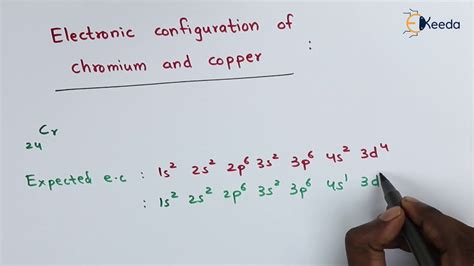 Electronic configuration of
chromium and copper :
Keeda
24Cr
Expected e.c : 1s² 2s² 2p⁶ 3s² 3p⁶ 4s² 3d⁴
: 1s² 2s² 2p⁶ 3s² 3p⁶ 4s¹ 3d